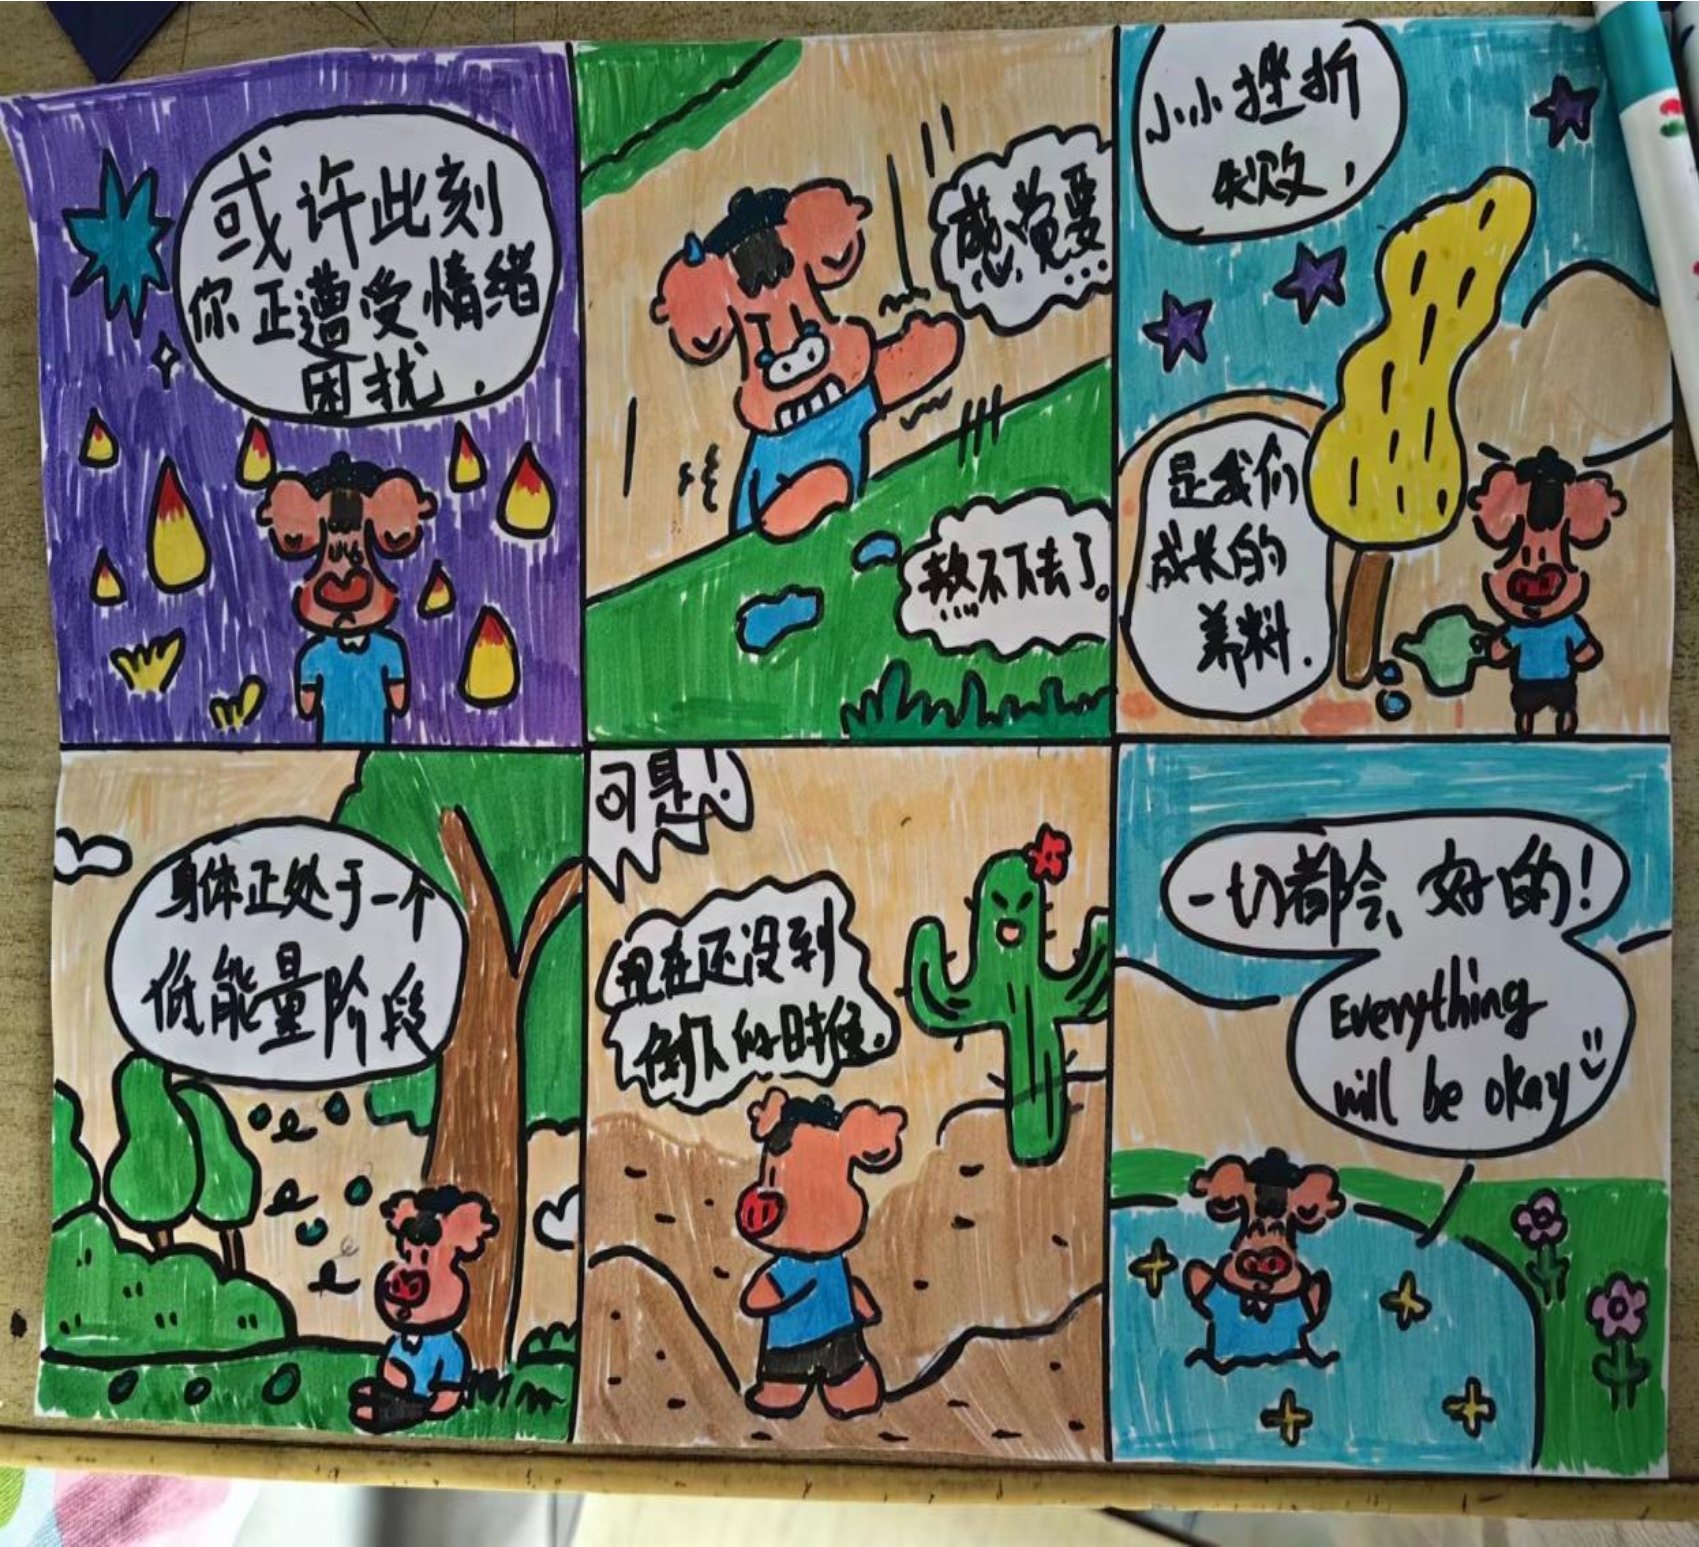 或许此刻
你正遭受情绪
困扰.
身体正处于一个
低能量阶段
感觉要...
熬不下去了。
可是!
现在还没到
倒下的时候。
小小挫折
失败,
是我们
成长的
养料.
一切都会好的!
Everything
will be okay